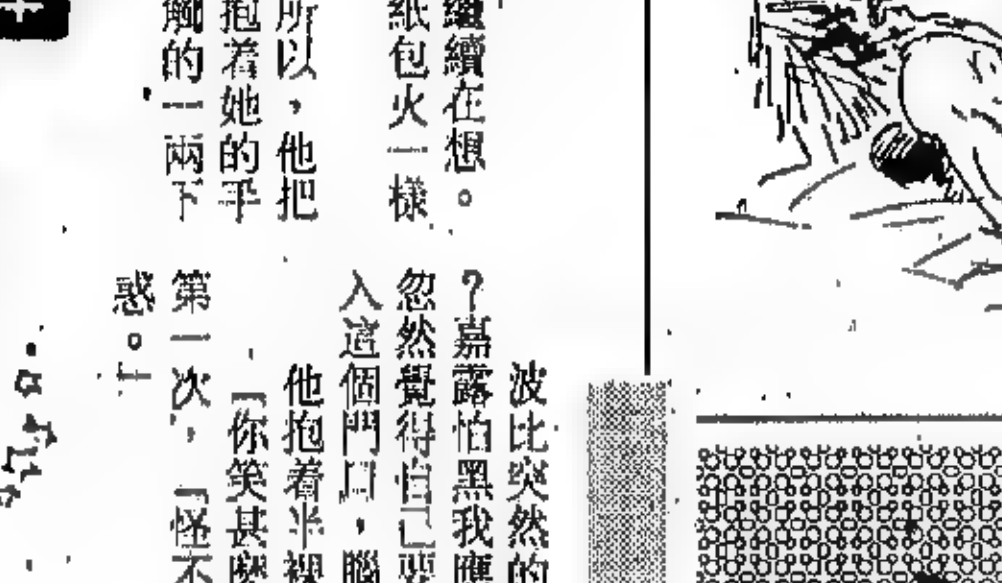 繼續在想。
紙包火一樣
所以，他把
抱着她的手
觸的一兩下
波比突然的
？嘉露怕黑我應
忽然覺得自己要
入這個門口，腦
他抱着半裸
「你笑甚麼
第一次，「怪不
惑。」